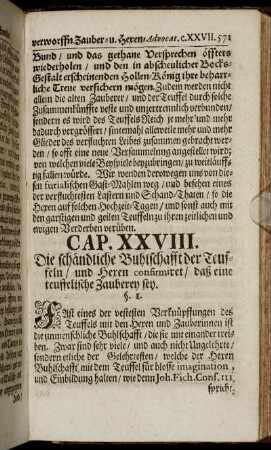 verworffn. Zauber- u. Hexen-Advocat. c. XXVII. 571
Bund / und das gethane Versprechen öffters
wiederholen / und den in abscheulicher Bocks-
Gestalt erscheinenden Höllen-König ihre beharr-
liche Treue versichern mögen. Zudem werden nicht
allein die alten Zauberer / und der Teuffel durch solche
Zusammenkünffte veste und unzertrennlich verbunden /
sondern es wird des Teuffels Reich je mehr und mehr
dadurch vergrössert / sintemahl alleweile mehr und mehr
Glieder des verfluchten Leibes zusammen gebracht wer-
den / so offt eine neue Versammelung angestellet wird;
von welchen viele Beyspiele beyzubringen / zu weitläuff-
tig fallen würde. Wir wenden derowegen uns von die-
sen furialischen Gast-Mahlen weg / und besehen eines
der verfluchtesten Lastern und Schand-Thaten / so die
Hexen auf solchen Hochzeit-Tagen / und sonst auch mit
den garstigen und geilen Teuffeln zu ihren zeitlichen und
ewigen Verderben verüben.
CAP. XXVIII.
Die schändliche Buhlschafft der Teuf-
feln / und Hexen confirmiret / daß eine
teuffelische Zauberey sey.
§. 1.
FAst eines der vestesten Verknüpffungen des
Teuffels mit den Hexen und Zauberinnen ist
die unmenschliche Buhlschafft / die sie mit einander trei-
ben. Zwar sind sehr viele / und auch nicht Ungelehrte /
sondern etliche der Gelehrtesten / welche der Hexen
Buhlschafft mit dem Teuffel für blosse imagination,
und Einbildung halten / wie denn Joh. Fich. Cons. III.
spricht: